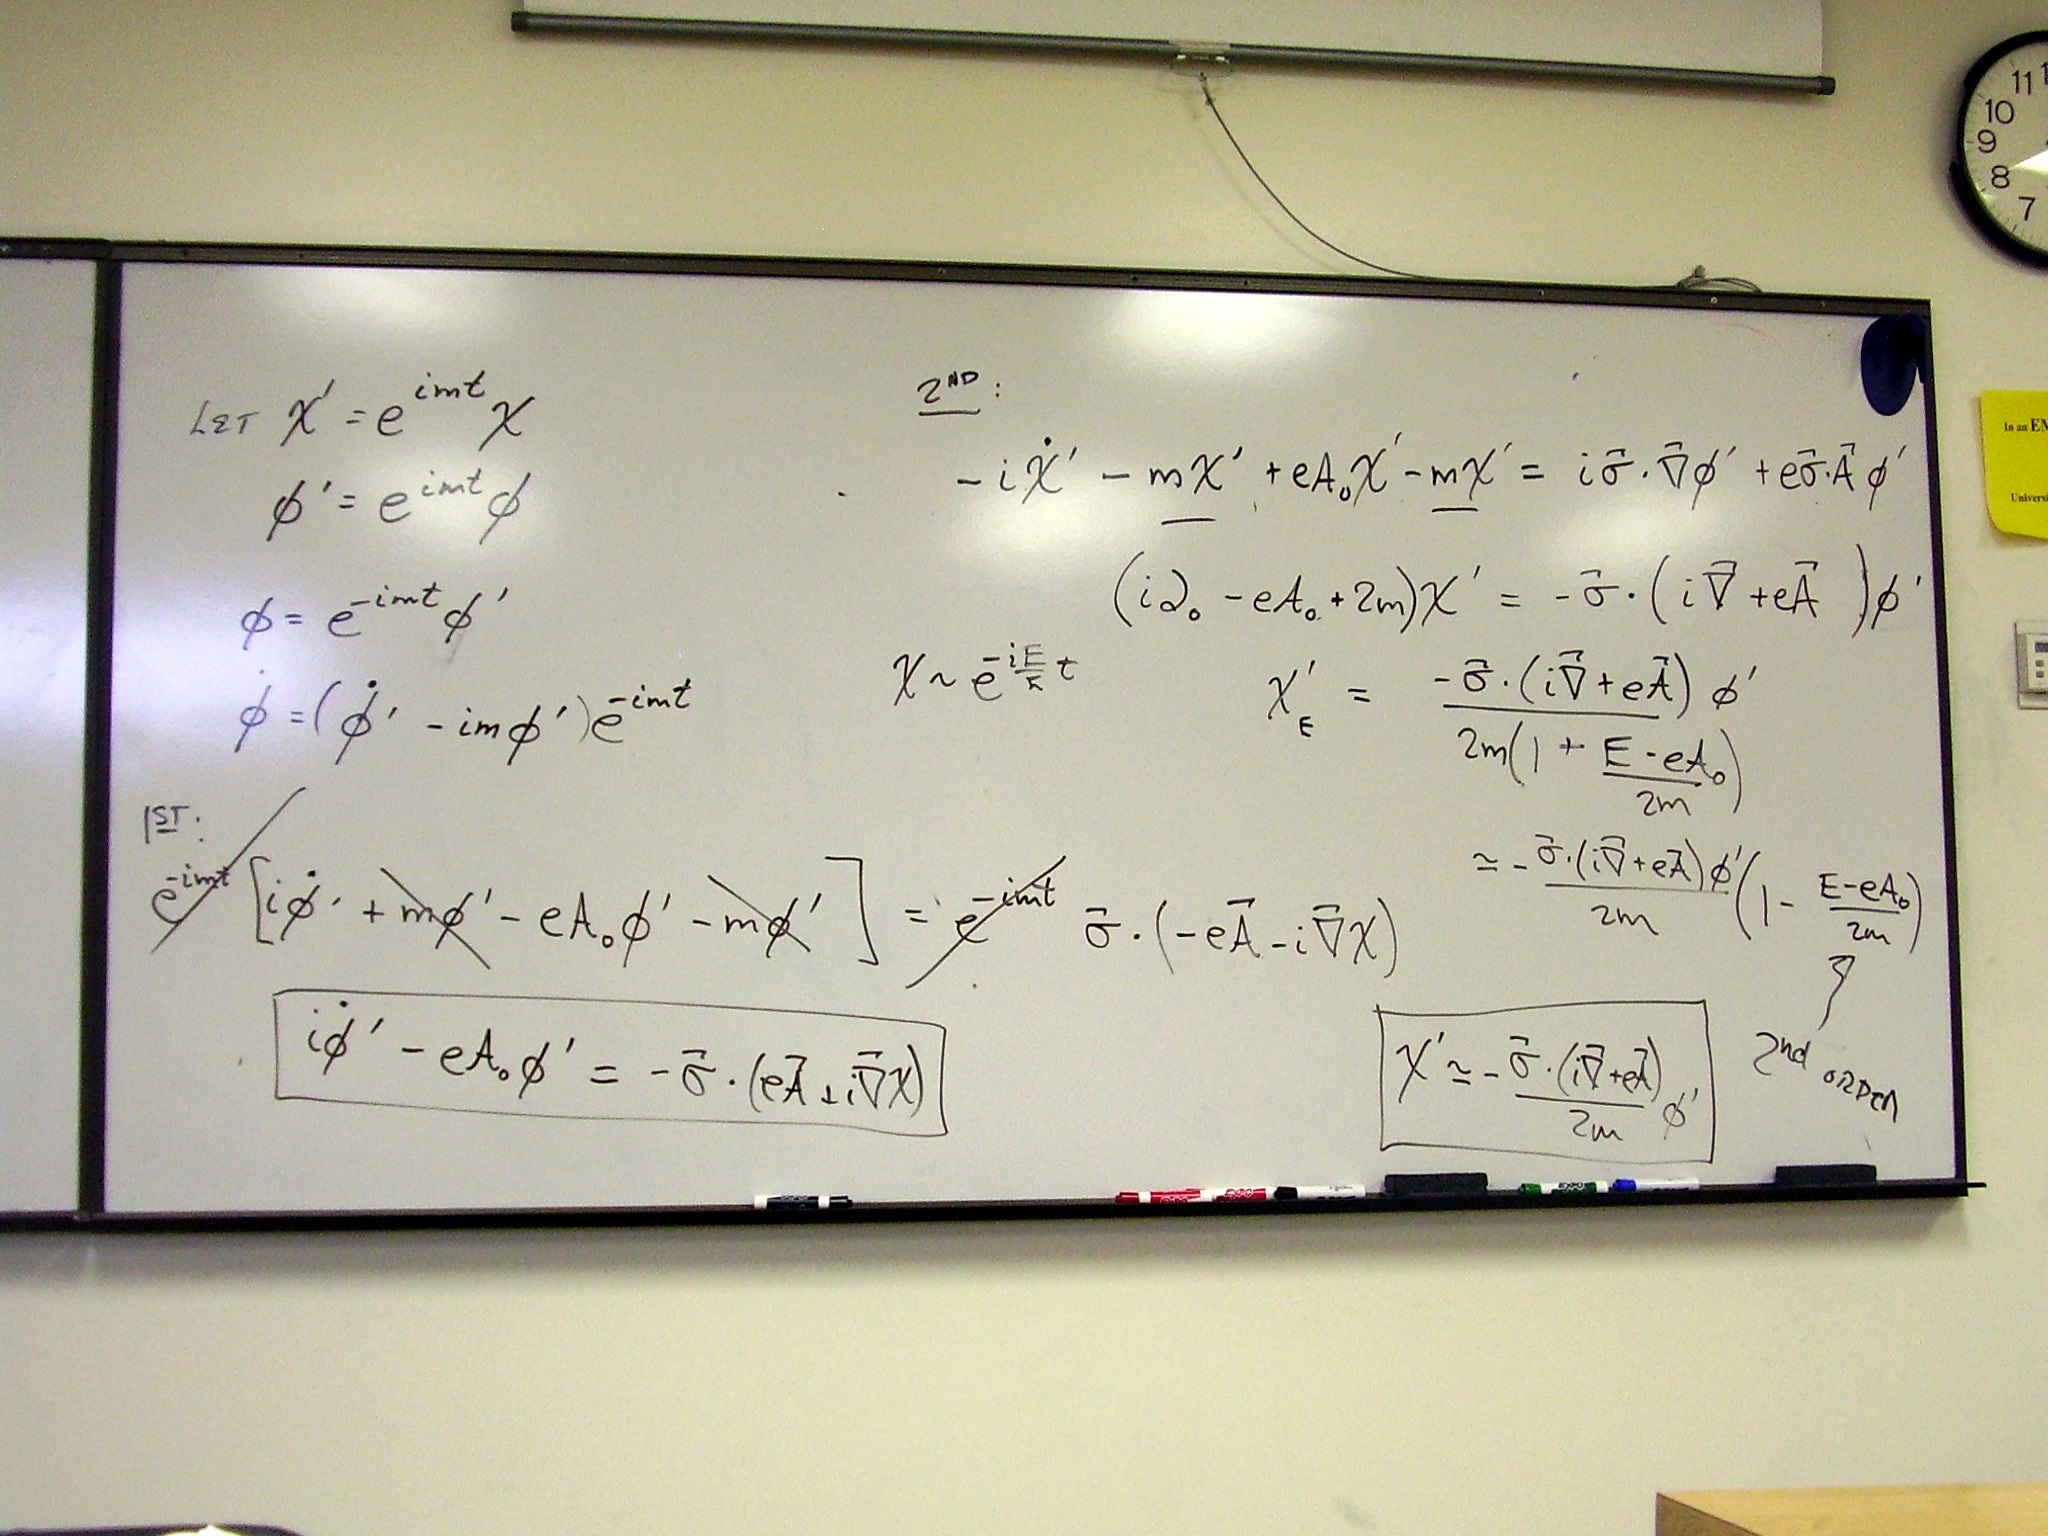 LET χ′ = e^{imt} χ
ϕ′ = e^{imt} ϕ
ϕ = e^{-imt} ϕ′
ϕ̇ = (ϕ̇′ - imϕ′)e^{-imt}
1ST:
e^{-imt} [iϕ̇′ + mϕ′ - eA₀ϕ′ - mϕ′] = e^{-imt} σ⃗·(-eA⃗ - i∇⃗χ)
iϕ̇′ - eA₀ϕ′ = -σ⃗·(eA⃗ + i∇⃗χ)
2ND:
-iχ̇′ - mχ′ + eA₀χ′ - mχ′ = iσ⃗·∇⃗ϕ′ + eσ⃗·A⃗ϕ′
(i∂₀ - eA₀ + 2m)χ′ = -σ⃗·(i∇⃗ + eA⃗)ϕ′
χ ~ e^{-i\frac{E}{ħ}t}
χ′_E = \frac{-σ⃗·(i∇⃗ + eA⃗) ϕ′}{2m(1 + \frac{E - eA₀}{2m})}
≃ -\frac{σ⃗·(i∇⃗ + eA⃗)ϕ′}{2m}(1 - \frac{E - eA₀}{2m})
2nd ORDER
χ′ ≃ -\frac{σ⃗·(i∇⃗ + eA⃗)}{2m} ϕ′
11 1
10
9
8
7
In an EM
Universi
EXPO
EXPO